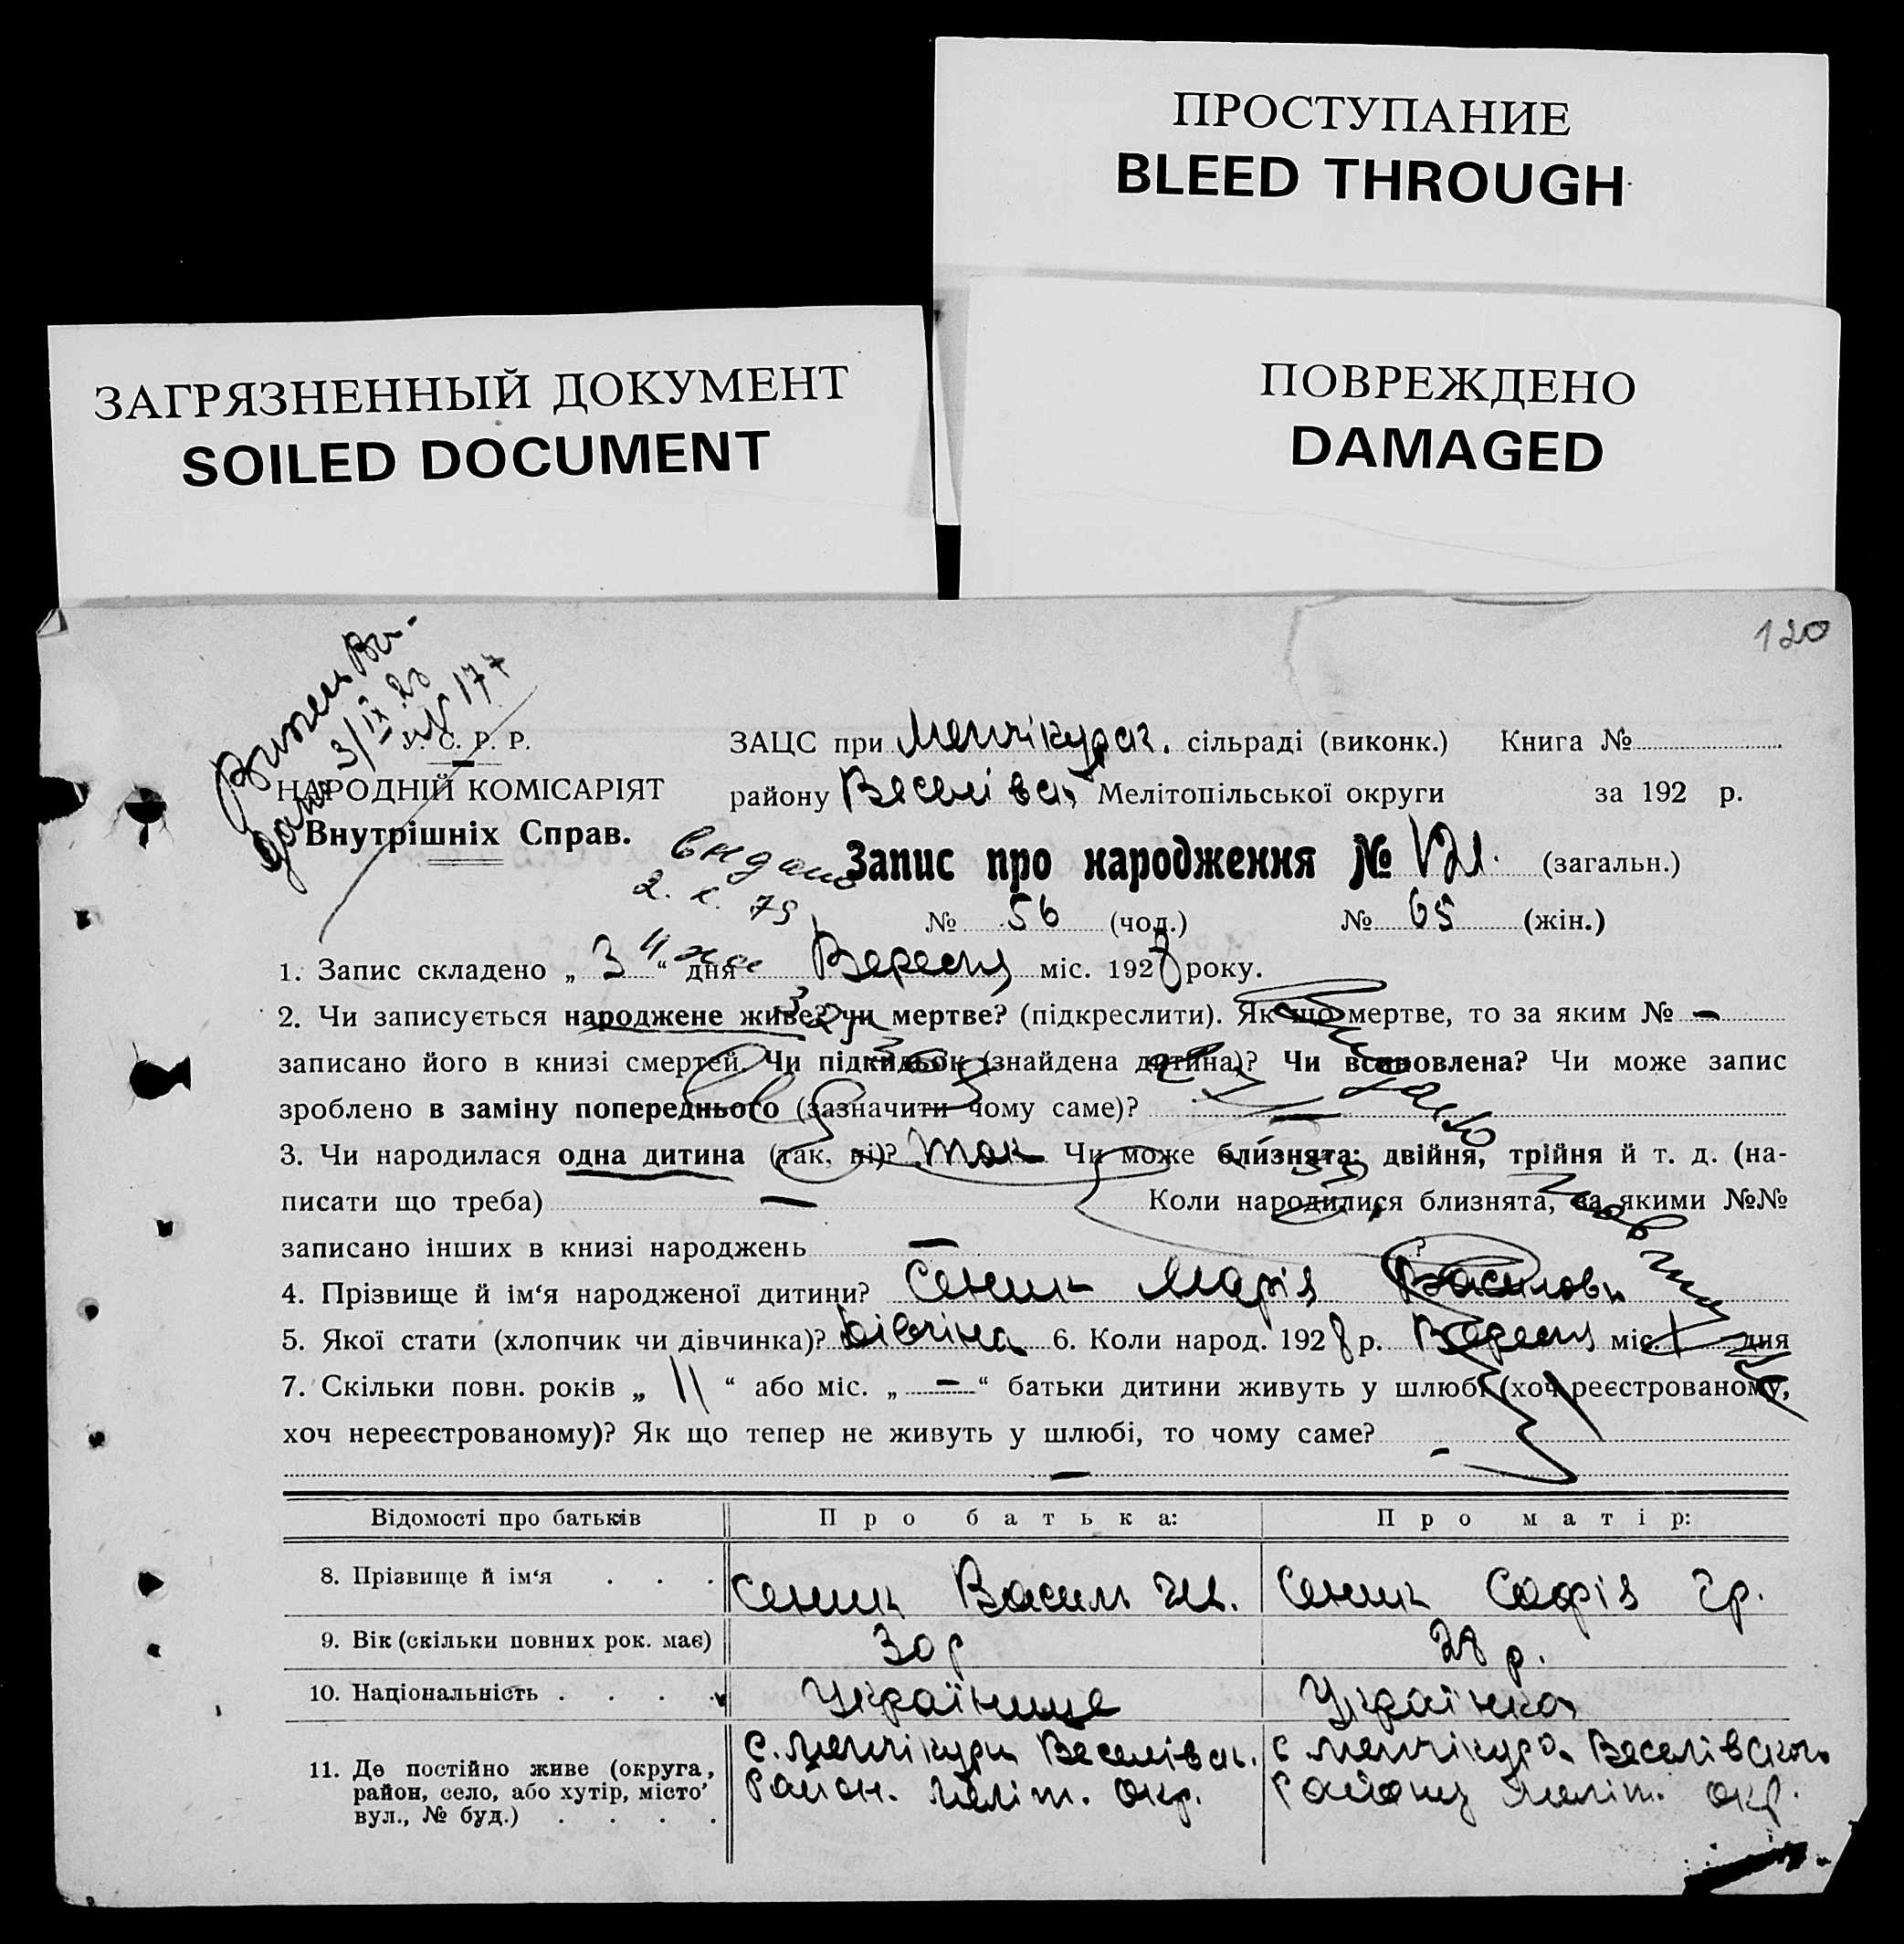 ПРОСТУПАНИЕ
BLEED THROUGH
ЗАГРЯЗНЕННЫЙ ДОКУМЕНТ
SOILED DOCUMENT
ПОВРЕЖДЕНО
DAMAGED
120
3/IX 28
№ 177
У. С. Р. Р.
НАРОДНІЙ КОМІСАРІЯТ
Внутрішніх Справ.
ЗАЦС при Менчікурас. сільраді (виконк.) Книга №
району Веселівск Мелітопільської округи за 192 р.
видано
2. X. 75
Запис про народження № 121. (загальн.)
№ 56 (чол.) № 65 (жін.)
1. Запис складено „ 3 “ дня Вересня міс. 1928 року.
2. Чи записується народжене живе? чи мертве? (підкреслити). Як що мертве, то за яким № —
записано його в книзі смертей. Чи підкидьок (знайдена дитина)? Чи встановлена? Чи може запис
зроблено в заміну попереднього (зазначити чому саме)? —
3. Чи народилася одна дитина (так, ні)? так Чи може близнята: двійня, трійня й т. д. (на-
писати що треба) — Коли народилися близнята, за якими №№
записано інших в книзі народжень — ?
4. Прізвище й ім‘я народженої дитини? Сеник Марія Василовн
5. Якої стати (хлопчик чи дівчинка)? дівчіна 6. Коли народ. 1928 р. Вересня міс. 1 дня
7. Скільки повн. років „ 11 “ або міс. „ — “ батьки дитини живуть у шлюбі (хоч реєстрованому,
хоч нереєстрованому)? Як що тепер не живуть у шлюбі, то чому саме? —
—
Відомості про батьків Про батька: Про матір:
8. Прізвище й ім‘я . . . Сеник Василь Ил. Сеник Софія Гр.
9. Вік (скільки повних рок. має) 30 р 28 р.
10. Національність . . . . Українице Українка
11. Де постійно живе (округа, район, село, або хутір, місто’ вул., № буд.) . . . .
с. Менчікури Веселівск.
Район. Меліт. Окр.
с Менчікура Веселівского
Району Меліт. окр.